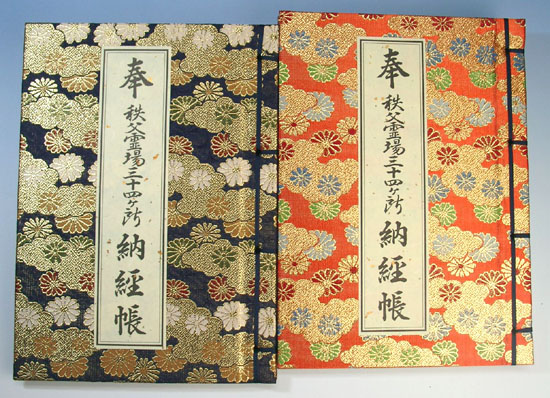 奉秩父霊場三十四ヶ所納経帳
奉秩父霊場三十四ヶ所納経帳